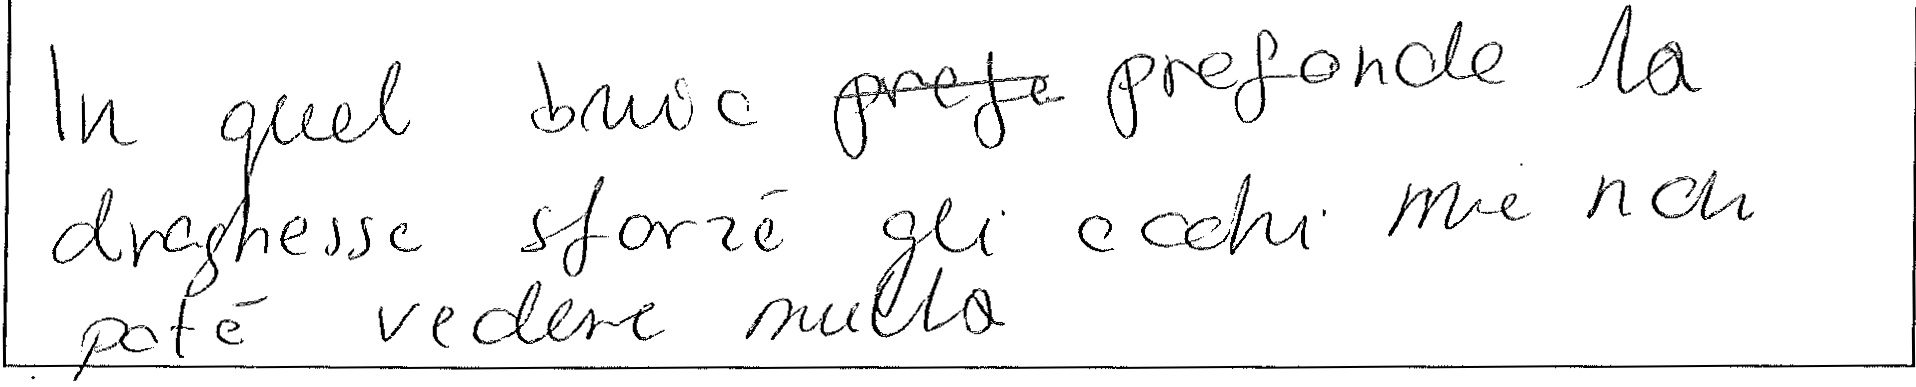 In quel buio profondo la
draghessa sforzò gli occhi ma non
poté vedere nulla